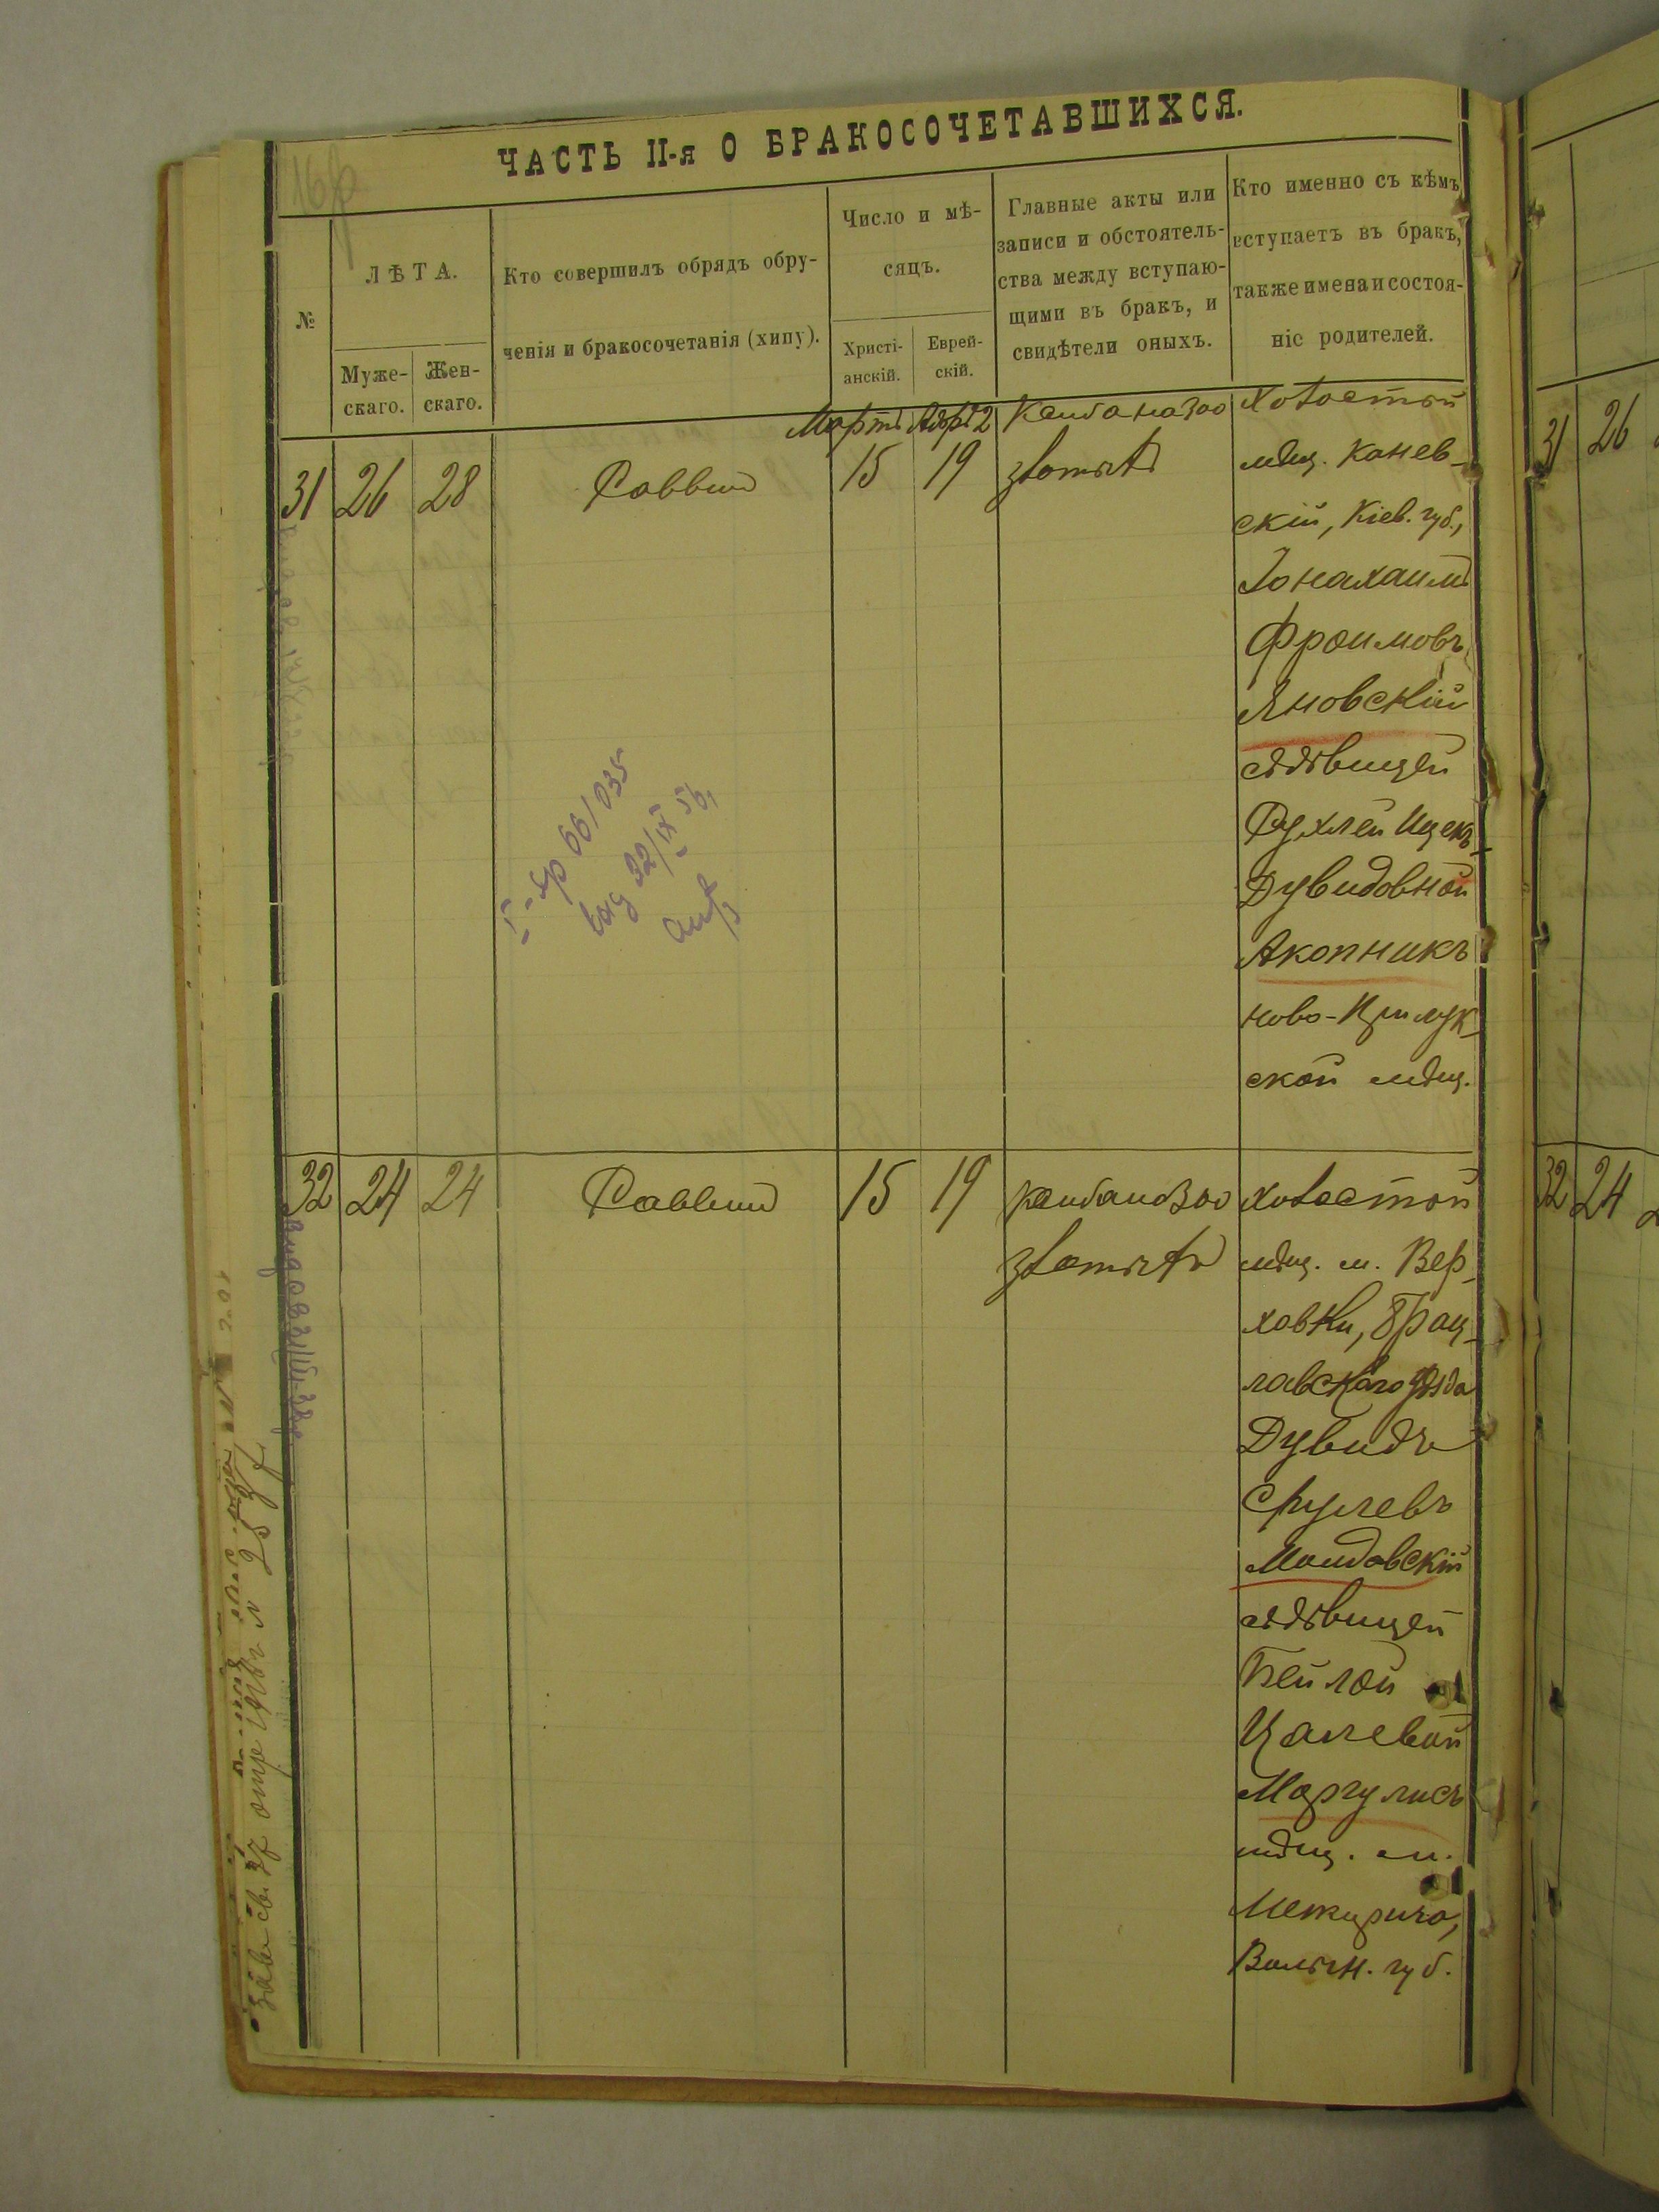 ЧАСТЬ II-я О БРАКОСОЧЕТАВШИХСЯ.
№
ЛѢТА.
Муже-
скаго.
Жен-
скаго.
Кто совершилъ обрядъ обру-
ченія и бракосочетанія (хипу).
Число и мѣ-
сяцъ.
Христі-
анскій.
Еврей-
скій.
Главные акты или
записи и обстоятель-
ства между вступаю-
щими въ бракъ, и
свидѣтели оныхъ.
Кто именно съ кѣмъ
вступаетъ въ бракъ,
также имена и состоя-
ніе родителей.
31
26
28
Раввинъ
Мартъ
15
Адаръ 2
19
Ксиба на 300
злотыхъ
Холостый
мѣщ. Канев-
скій, Кіев. губ.,
Іонахаимъ
Фроимовъ
Яновскій
съ дѣвицей
Рухлей Ицекъ-
Дувидовной
Акопникъ
ново-Прилук-
ской мѣщ.
32
24
24
Раввинъ
15
19
Ксиба на 300
злотыхъ
холостой
мѣщ. м. Вер-
ховки, Брац-
лавскаго уѣзда
Дувидъ
Срулевъ
съ дѣвицей
Бейлой
Цалевой
Маргулисъ
мѣщ. м.
Межирича,
Волын. губ.
31
26
32
24